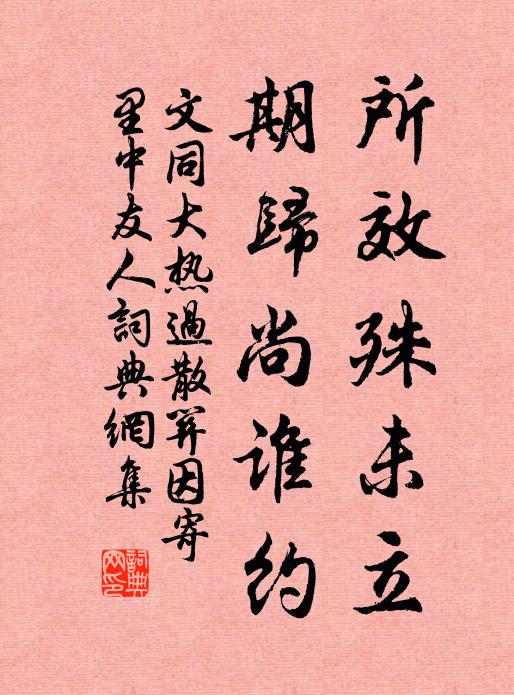 所效殊未立
期歸尚誰約
文同大热過散关因寄
里中友人詞典網集
詞典
网印